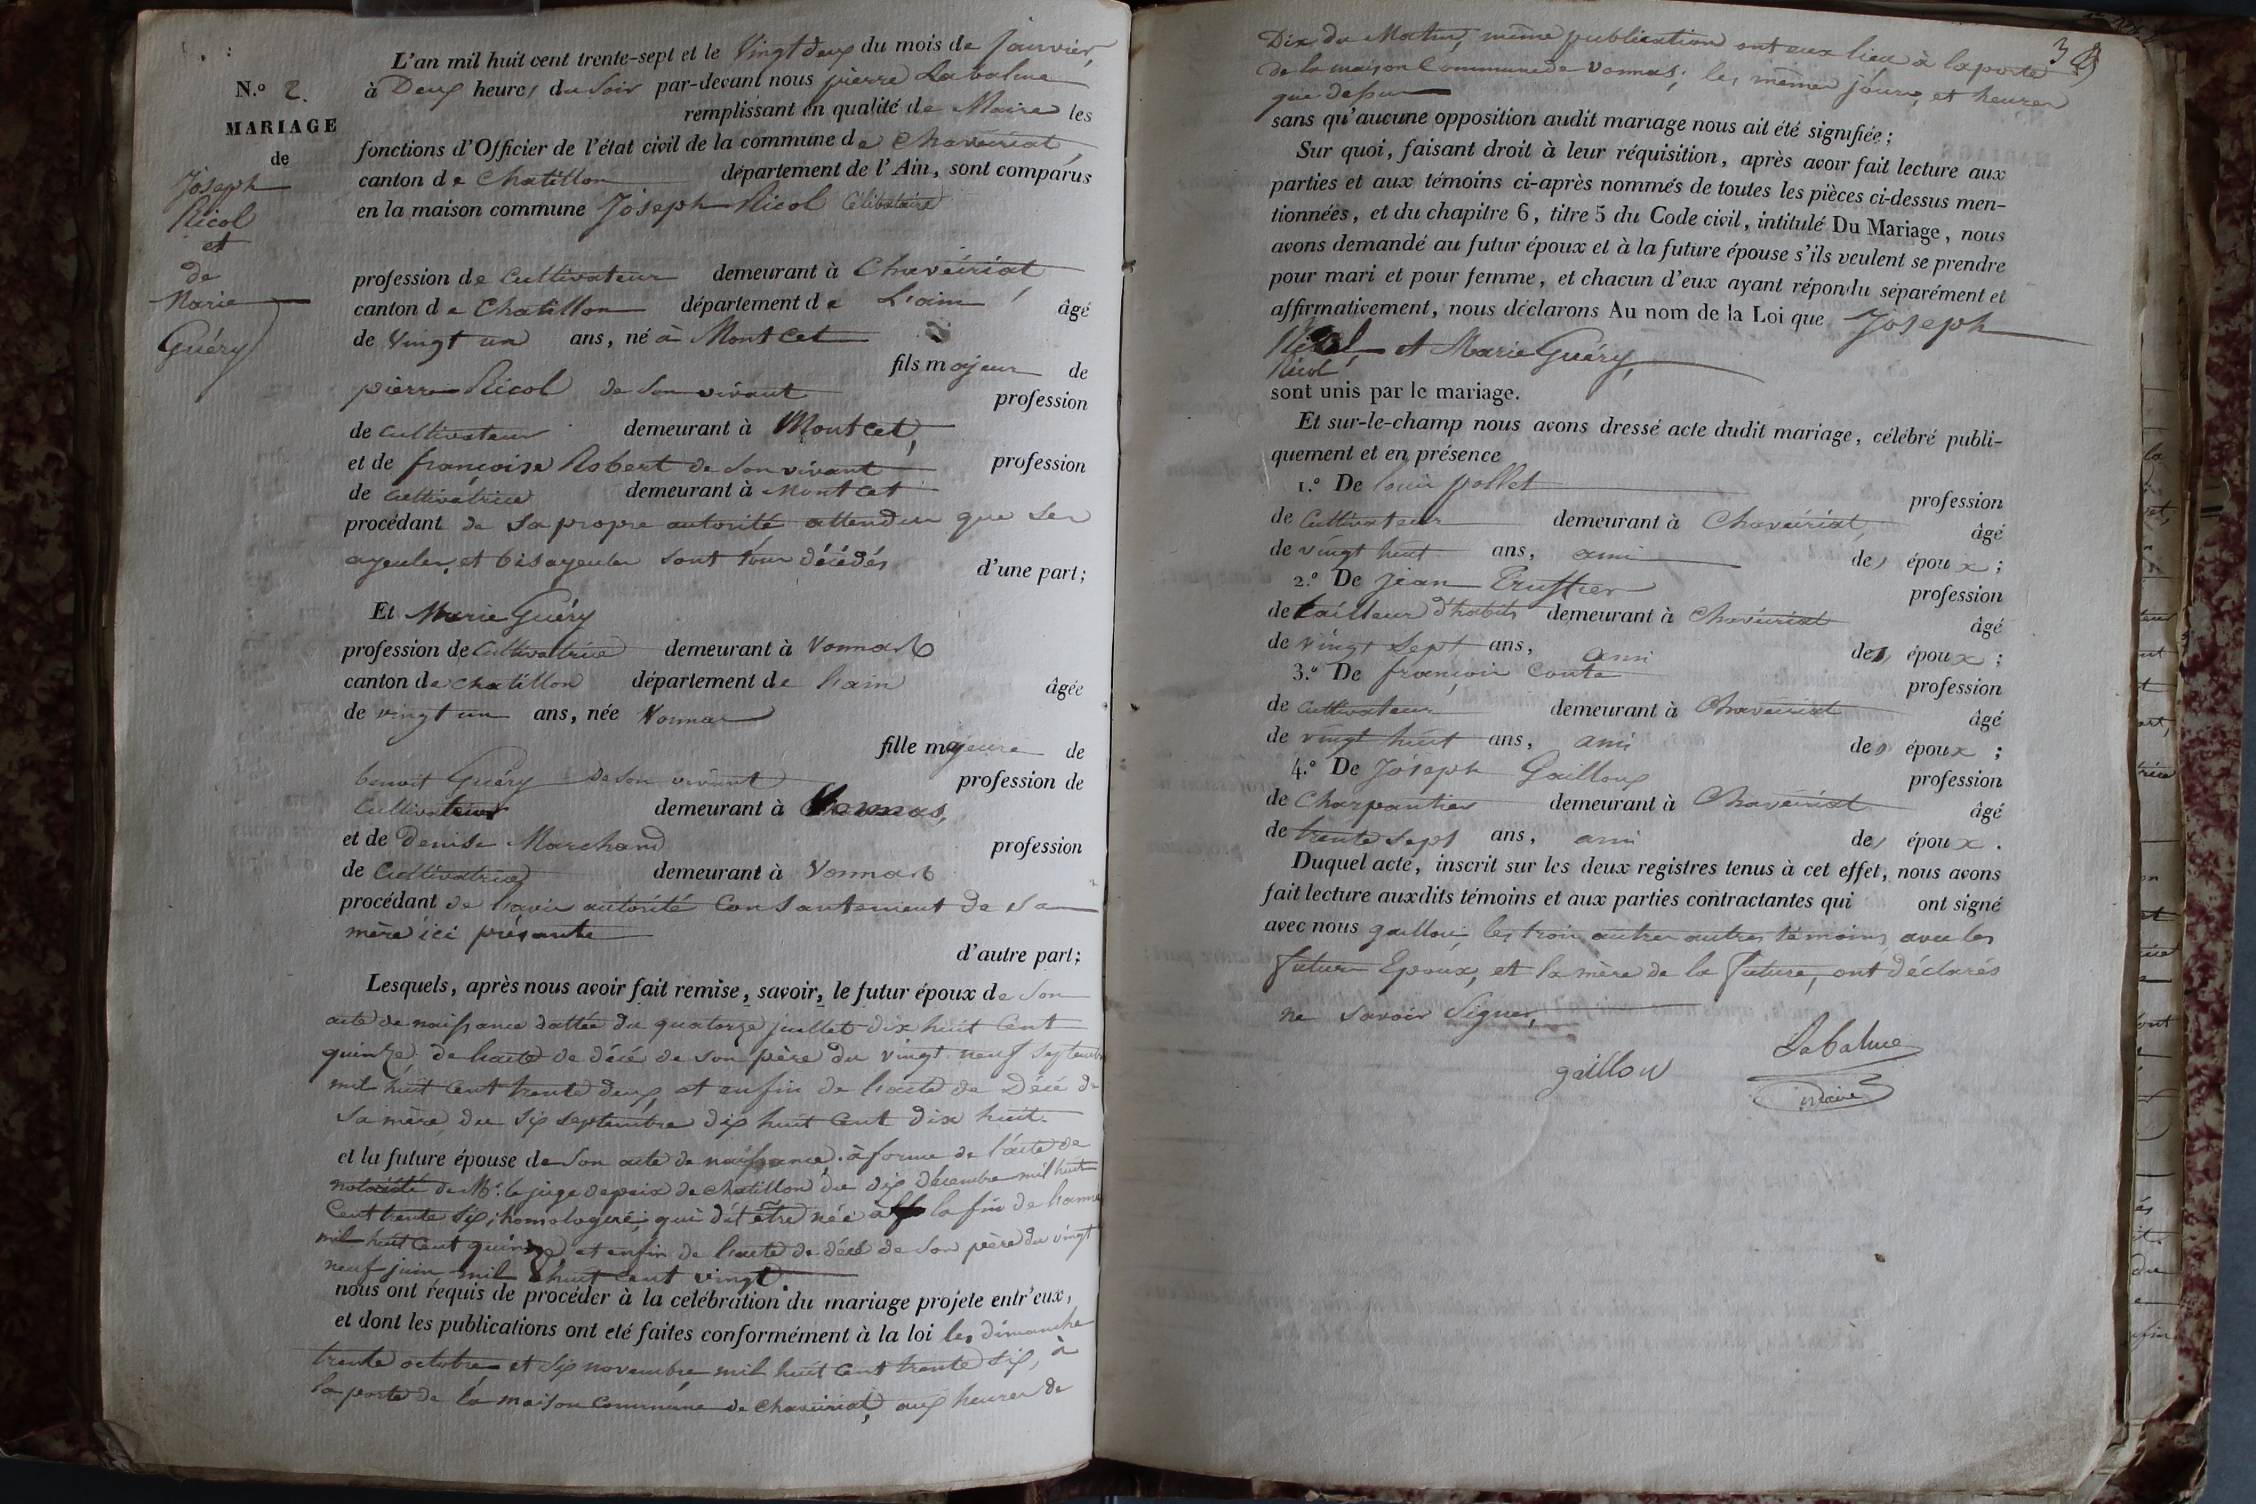 N.º 2.
MARIAGE
de
Joseph
Nicol
et
de
Marie
Guéry
L'an mil huit cent trente-sept et le Vingt deux du mois de janvier,
à Deux heures du Soir par-devant nous pierre Labalme
remplissant en qualité de Maire les
fonctions d'Officier de l'état civil de la commune de Chaveiriat,
canton de Chatillon département de l'Ain, sont comparus
en la maison commune Joseph Nicol Célibataire
profession de Cultivateur demeurant à Chavéiriat
canton de Chatillon département de L'ain, âgé
de Vingt un ans, né à Montcet
fils majeur de
pierre Nicol de Son vivant profession
de cultivateur demeurant à Montcet,
et de françoise Robert de Son vivant profession
de cultivatrice demeurant à Montcet
procédant de Sa propre autorité attendu que Ses
ayeules, et bisayeules sont tous décédés d'une part;
Et Marie Guéry
profession de Cultivatrice demeurant à Vonnas
canton de chatillon département de l'ain âgée
de vingt un ans, née Vonnas
fille majeure de
benoit Guéry de Son vivant profession de
Cultivateur demeurant à Vonnas,
et de Denise Marchand profession
de Cultivatrice demeurant à Vonnas
procédant de l'avis autorité Consantement de sa
mère ici présante
d'autre part;
Lesquels, après nous avoir fait remise, savoir, le futur époux de Son
acte de naissance dattée du quatorze juillet dix huit Cent
quinze. de l'acte de décé de son père du vingt neuf Septembre
mil huit Cent trente deux et enfin de l'acte de Décé de
Sa mère du Six Septembre dix huit Cent Dix huit.
et la future épouse de Son acte de naissance. à forme de l'acte de
notoriété de Mr. le juge de paix de chatillon du dix décembre mil huit
Cent trente Six, homologueé, qui dit être née à la fin de l'année
mil huit Cent quinze, et enfin de l'acte de décé de Son père du vingt
neuf juin mil huit Cent vingt.
nous ont requis de procéder à la celébration du mariage projeté entr'eux,
et dont les publications ont été faites conformément à la loi les dimanche
trente octobre et Six novembre mil huit Cent trente Six, à
la porte de la maison Commune de Chaveiriat, aux heures de
3
Dix du Matin, même publication ont eux lieu à la porte
de la maison Commune de Vonnas; les mêmes jours, et heures
que dessus
sans qu'aucune opposition audit mariage nous ait été signifiée;
Sur quoi, faisant droit à leur réquisition, après avoir fait lecture aux
parties et aux témoins ci-après nommés de toutes les pièces ci-dessus men-
tionnées, et du chapitre 6, titre 5 du Code civil, intitulé Du Mariage, nous
avons demandé au futur époux et à la future épouse s'ils veulent se prendre
pour mari et pour femme, et chacun d'eux ayant répondu séparément et
affirmativement, nous déclarons Au nom de la Loi que Joseph
Nicol et Marie Guéry,
Nicol
sont unis par le mariage.
Et sur-le-champ nous avons dressé acte dudit mariage, célébré publi-
quement et en présence
1.º De louis pollet profession
de Cultivateur demeurant à Chaveiriat, âgé
de vingt huit ans, ami des époux;
2.º De jean profession
de tailleur d'habits demeurant à Chavéiriat âgé
de vingt Sept ans, ami des époux;
3.º De françois Conte profession
de Cultivateur demeurant à Chaveiriat âgé
de vingt huit ans, ami des époux;
4.º De Joseph Gailloux profession
de Charpantier demeurant à Chaveiriat âgé
de trente Sept ans, ami des époux.
Duquel acte, inscrit sur les deux registres tenus à cet effet, nous avons
fait lecture auxdits témoins et aux parties contractantes qui ont signé
avec nous gaillou, les trois autres autres témoins, avec les
futurs Epoux, et la mère de la future, ont déclarés
ne savoir Signer,
gaillou
Labalme
maire